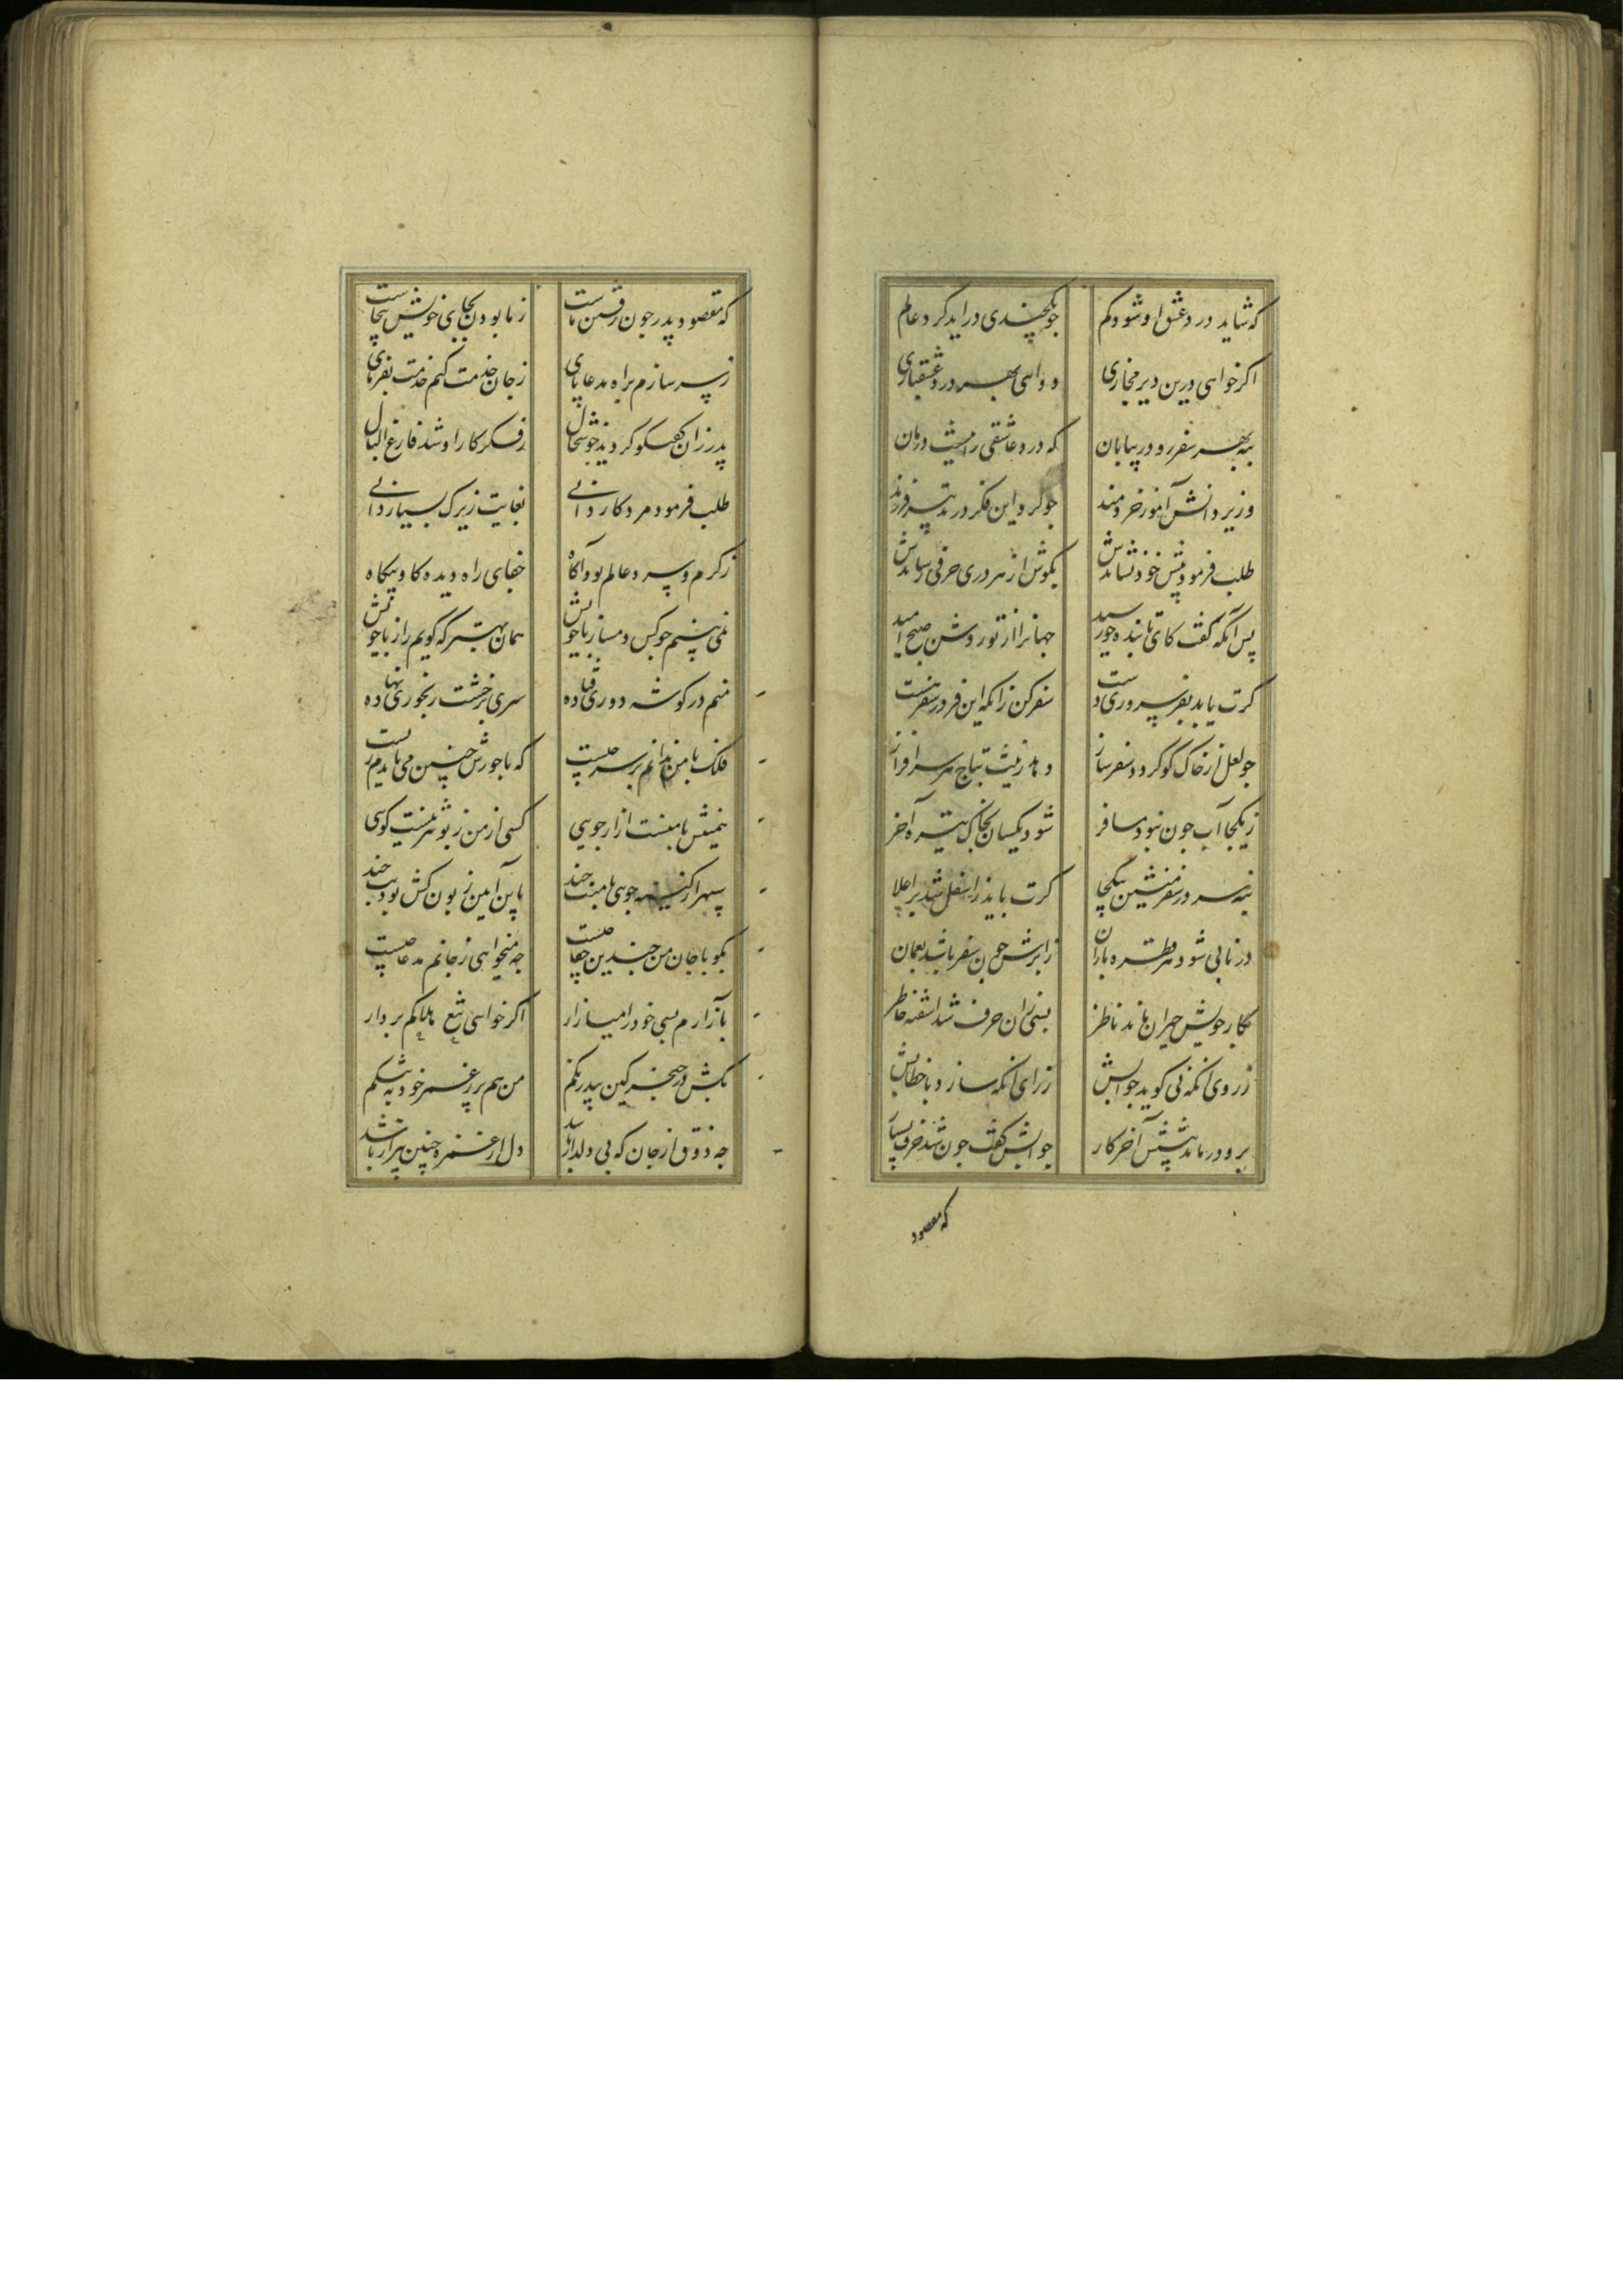 که شاید درد عشق او شود کم جو یکچندی درآید کرد عالم
اکر خواهی درین دیر مجازی دوای بهر درد عشقبازی
بنه بهر سفر رو در بیابان که درد عاشقی را نیست درمان
وزیر دانش آموز خردمند جو کرد این فکر در تدبیر فرزند
طلب فرمود پیش خود نشاندش بکوش از هر دری حرفی رساندش
پس آنکه کفت کای تابنده خورشید جهانرا از تو روشن صبح امید
کرت باید بفر سروری دست سفر کن زانکه این فر در سفر هست
جو لعل از خاک کو کردد سفر ساز دهد زینت بتاج هر سرافراز
زیکجا آب جون نبود مسافر شود یکسان بخاک تیره آخر
بنه سر در سفر منشین بیکجا کرت باید ز اسفل شد بر اعلا
در نابی شود هر قطره باران ز ابرش جون سفر باشد بعمان
بکار خویش حیران ماند ناظر بسی زان حرف شد آشفته خاطر
ز روی آنکه نی کوید جوابش ز رای آنکه سازد با خطابش
برو درماند پیشش آخر کار جوابش کفت جون شد حرف بسیار
که مقصود
که مقصود پدر جون رفتن ماست ز ما بودن بجای خویش بیجاست
ز سر سازم براه مدعا پای ز جان خدمت کنم خدمت بفرمای
پدر زان کفتکو کردید خوشحال ز فکر کار او شد فارغ البال
طلب فرمود مرد کاردانی بغایت زیرک بسیاردانی
ز کرم و سرد عالم بود آکاه جفای راه دیده کاه و بیکاه
نمی بینم جو کس دمساز با خویش همان بهتر که کویم راز با خویش
منم در کوشه دوری فتاده سری بر خشت رنجوری نهاده
فلک با من ندانم بر سر چیست که با جورش چنین می بایدم زیست
همیشش با منست آزار جویی کسی از من زبونتر نیست کویی
سپهرا کینه جویی با منت چند باین آیین زبون کش بودنت چند
بکو با جان من چندین جفا چیست چه میخواهی ز جانم مدعا چیست
بآزارم بسی خود را میازار اکر خواهی هلاکم تیغ بردار
بکش در خنجر کین بیدرنکم من هم بر سر غم خود به تنکم
چه ذوق از جان که بی دلدار باشد دل از عمر چنین بیزار باشد